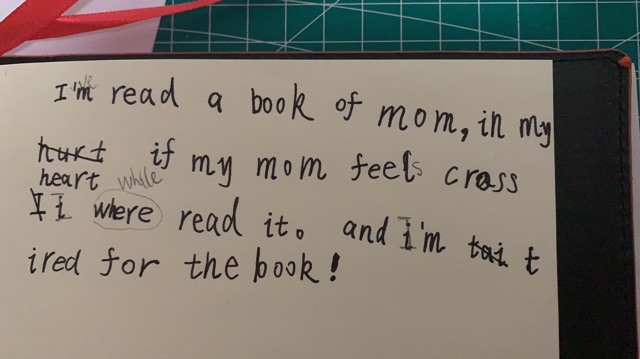 I'm ve read a book of mom, in my
hurt if my mom feels cross
heart while
I I where read it. and I'm tai t
ired for the book!